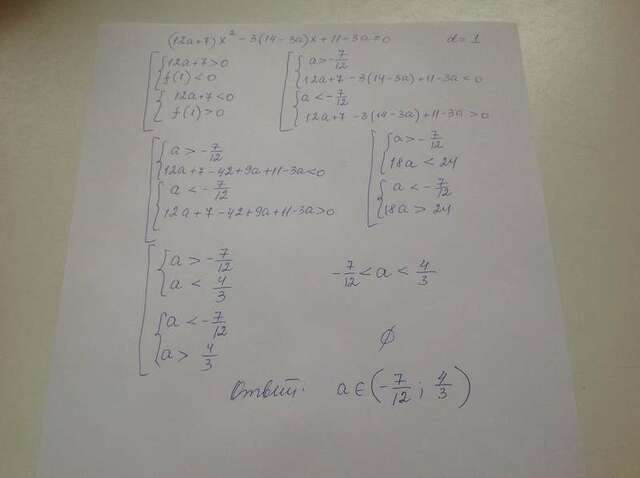 (12a+7)x² - 3(14-3a)x + 11-3a=0 d=1
12a+7>0
f(1)<0
12a+7<0
f(1)>0
a>-7/12
12a+7-3(14-3a)+11-3a<0
a<-7/12
12a+7-3(14-3a)+11-3a>0
a>-7/12
12a+7-42+9a+11-3a<0
a<-7/12
12a+7-42+9a+11-3a>0
a>-7/12
18a<24
a<-7/12
18a>24
a>-7/12
a<4/3
a<-7/12
a>4/3
-7/12<a<4/3
∅
Ответ. a∈(-7/12; 4/3)